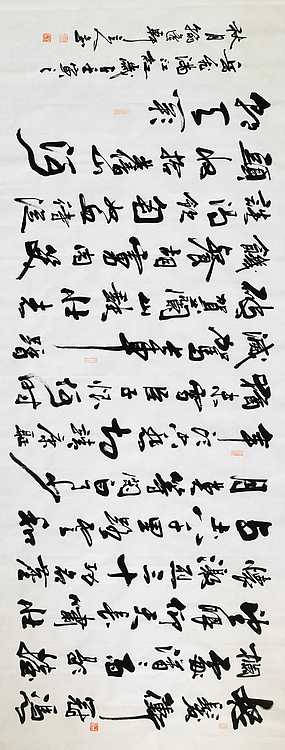 怒髮衝冠
欄處瀟雨歇抬
望眼仰天長嘯壯
懷激烈三十功名塵
與土八千里路雲和
月莫等閒白了少
年頭空悲切靖康恥
猶未雪臣子恨何時
滅駕長車踏
破賀蘭山缺壯志
飢餐胡虜肉笑
談渴飲匈奴血待從
頭收拾舊山河
朝天闕
岳飛滿江紅
秋月